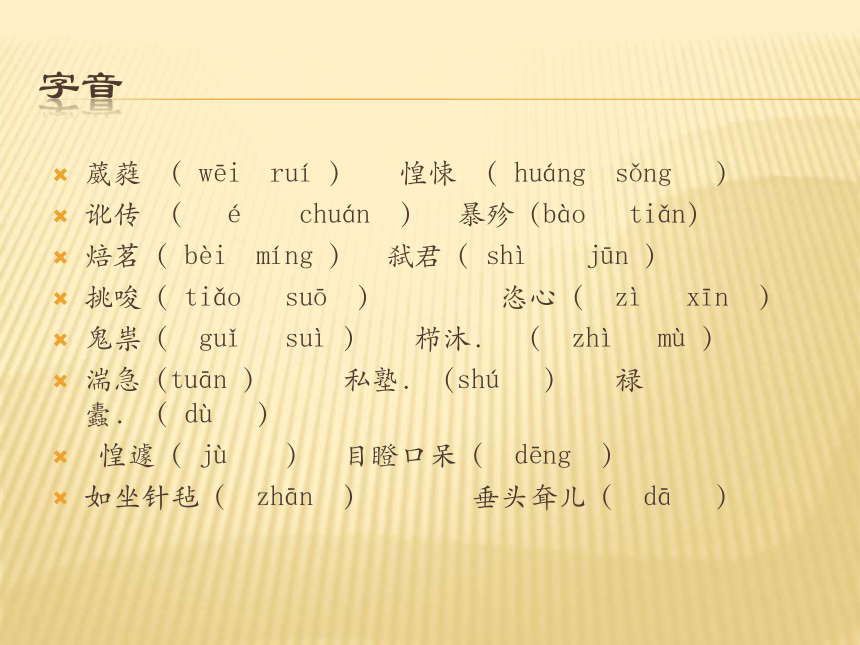 字音
葳蕤 ( wēi ruí ) 惶悚 ( huáng sǒng )
讹传 ( é chuán ) 暴殄 (bào tiǎn)
焙茗 ( bèi míng ) 弑君 ( shì jūn )
挑唆 ( tiǎo suō ) 恣心 ( zì xīn )
鬼祟 ( guǐ suì ) 栉沐. ( zhì mù )
湍急 (tuān ) 私塾. (shú ) 禄
蠹. ( dù )
惶遽 ( jù ) 目瞪口呆 ( dēng )
如坐针毡 ( zhān ) 垂头耷儿 ( dā )